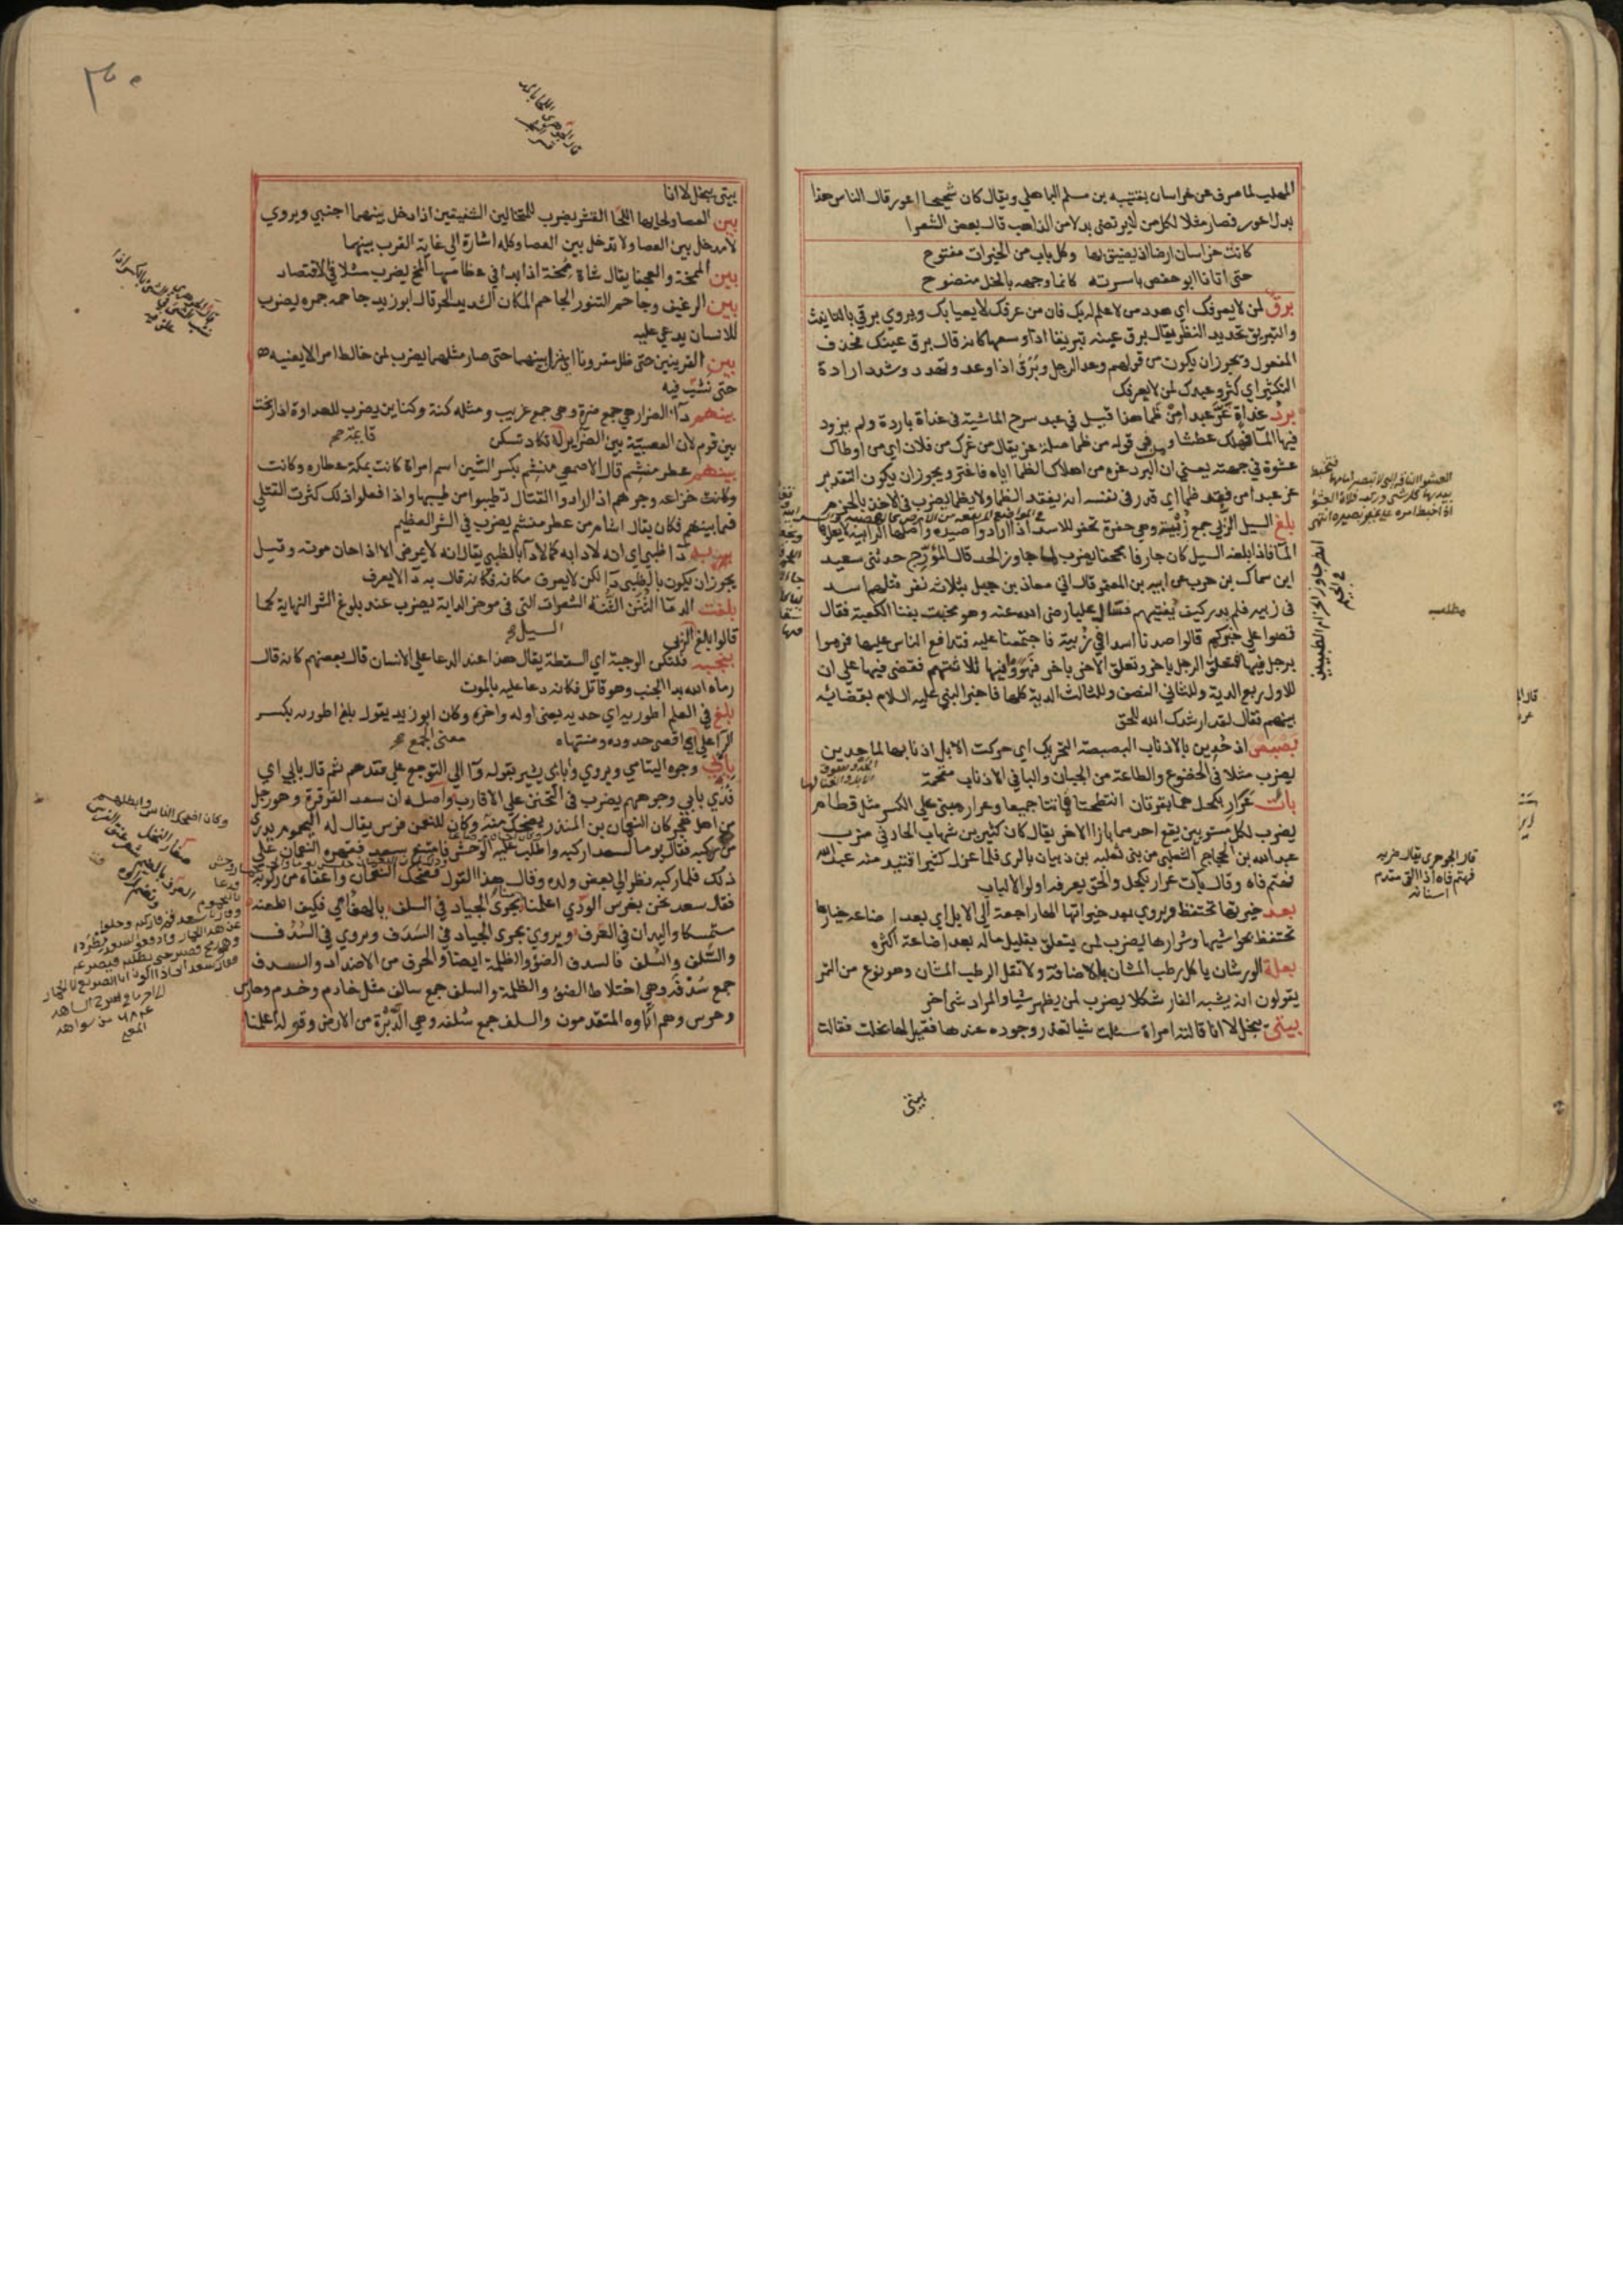 المهلب لما صرف عن خراسان بقتيبه بن مسلم الباهلي ويقال كان شحيحا اعور قال الناس هذا
بدل اعور فصار مثلا لكل من لا يرتضي بدلا من الذاهب قال بعض الشعرا
كانت خراسان ارضا اذ يضيق بها وكل باب من الخيرات مفتوح
حتى اتانا ابو حفص باسرته كانما وجهه بالخل منضوح
برق لمن لا يعرفك اي هدد من لا علم له بك فان من عرفك لا يعبا بك ويروي برقي بالتانيث
والتبريق تحديد النظر يقال برق عينه تبريقا اذا وسعها كانه قال برق عينك فحذف
المفعول ويجوز ان يكون من قولهم رعد الرجل وبرق اذا اوعد وتهدد وشدد ارادة
التكثير اي كثر وعيدك لمن لا يعرفك
برد غداة غر عبدا من ظما هذا قيل في عبد سرح الماشية في غداة باردة ولم يتزود
فيها الما فهلك عطشا ومن في قوله من ظما صلة غر يقال من غرك من فلان اي من اوطاك
عشوة في جهته يعني ان البرد غره من اهلاك الظما اياه فاغتر ويجوز ان يكون التقدير
غر عبدا من فقد ظما اي قدر في نفسه انه يفقد الظما ولا يظما يضرب في الاخذ بالحزم
بلغ السيل الزبي جمع زبية وهي حفرة تحفر للاسد اذا ارادوا صيده واصلها الرابية لا يعلوها
الما فاذا بلغه السيل كان جارفا مجحفا يضرب لما جاوز الحد قال المؤرج حدثني سعيد
ابن سماك بن حرب عن ابيه بن المعتمر قال اتي معاذ بن جبل بثلاثة نفر قتلهم اسد
في زبيه فلم يدر كيف يفتيهم فسال عليا رضي الله عنه وهو محتب بفنا الكعبة فقال
قصوا علي خبركم قالوا صدنا اسدا في زبية فاجتمعنا عليه فتدافع الناس عليها فرموا
برجل فيها فتعلق الرجل باخر وتعلق الاخر باخر فهووا فيها ثلاثتهم فقضى فيها علي ان
للاول ربع الدية وللثاني النصف وللثالث الدية كلها فاخبر النبي عليه السلام بقضائه
بينهم فقال لقد ارشدك الله للحق
بصبصن اذ حدين بالاذناب البصبصة التحريك اي حركت الابل اذنابها لما حدين
يضرب مثلا في الخضوع والطاعة من الجبان والبا في الاذناب مقحمة
باءت عرار بكحل هما بقرتان انتطحتا فماتتا جميعا وعرار مبني على الكسر مثل قطام
يضرب لكل مستويين يقع احدهما بازا الاخر يقال كان كثير بن شهاب الحارثي ضرب
عبد الله بن الحجاج الثعلبي من بني ثعلبه بن ذبيان بالري فلما عزل كثير اقتيد منه عبد الله
فهتم فاه وقال باءت عرار بكحل والحق يعرفه اولو الالباب
بعد خيرتها تحتفظ ويروي بعد خيراتها الها راجعة الي الابل اي بعد اضاعة خيارها
تحتفظ بحواشيها وشرارها يضرب لمن يتعلق بقليل ماله بعد اضاعة اكثره
بعلة الورشان ياكل رطب المشان بالاضافة ولا تقل الرطب المشان وهو نوع من التمر
يقولون انه يشبه الفار شكلا يضرب لمن يظهر شيا والمراد شي اخر
بيتي يبخل لا انا قالته امراة سئلت شيا تعذر وجوده عندها فقيل لها بخلت فقالت
بيتي
مطلب
قال الجوهري يقال ضربه
فهتم فاه اذا القى مقدم
اسنانه
بيتي يبخل لا انا
بين العصا ولحايها اللحا القشر يضرب للمتخالين الشفيقين اذا دخل بينهما اجنبي ويروي
لا مدخل بين العصا ولا تدخل بين العصا وكله اشارة الى غاية القرب بينهما
بين الممخة والعجفا يقال شاة ممخة اذا بدا في عظامها المخ يضرب مثلا في الاقتصاد
بين الرغيف وجاحم التنور الجاحم المكان الشديد الحر قال ابو زيد جاحمه جمره يضرب
للانسان يدعي عليه
بين القرينين حتى ظل مقرونا اي نزا بينهما حتى صار مثلهما يضرب لمن خالط امرا لا يعنيه
حتى نشب فيه
بينهم دا الضراير هي جمع ضرة وهي جمع غريب ومثله كنة وكناين يضرب للعداوة اذا رسخت
بين قوم لان العصبية بين الضراير لا تكاد تسكن
بينهم عطر منشم قال الاصمعي منشم بكسر الشين اسم امراة كانت بمكة عطاره وكانت
وكانت خزاعه وجرهم اذا ارادوا القتال تطيبوا من طيبها واذا فعلوا ذلك كثرت القتلي
فيما بينهم فكان يقال اشام من عطر منشم يضرب في الشر العظيم
به دا ظبي اي انه لا دا به كما لا دا بالظبي يقال انه لا يمرض الا اذا حان موته وقيل
يجوز ان يكون بالظبي دا لكن لا يعرف مكانه فكانه قال به دا لا يعرف
بلغت الدما الثنن الثنة الشعرات التي في موخر الدابة يضرب عند بلوغ الشر النهاية كما
قالوا بلغ السيل الزبي
بجنبه فلتكن الوجبة اي السقطة يقال هذا عند الدعا على الانسان قال بعضهم كانه قال
رماه الله بدا الجنب وهو قاتل فكانه دعا عليه بالموت
بلغ في العلم اطوريه اي حديه يعني اوله واخره وكان ابو زيد يقول بلغ اطوريه بكسر
الرا على معنى الجمع اي اقصى حدوده ومنتهاه
بابي وجوه اليتامي ويروي وابابي يشير بقوله وا الي التوجع على فقدهم ثم قال بابي اي
فدي بابي وجوههم يضرب في التحنن علي الاقارب واصله ان سعد القرقرة وهو رجل
من اهل هجر كان النعمان بن المنذر يضحك منه وكان للنعمن فرس يقال له اليحموم يردي
من ركبه فقال يوما لسعد اركبه واطلب عليه الوحش فامتنع سعد فقهره النعمان على
ذلك فلما ركبه نظر الي بعض ولده وقال هذا القول فضحك النعمان واعفاه من ركوبه
فقال سعد نحن بغرس الودي اعلمنا منا بجري الجياد في السلف بالهفامي فكيف اطعنه
مستمسكا واليدان في العرف ويروي بجري الجياد في السدف ويروي في السدف
والسلف والسلف فالسدف الضؤ والظلمة ايضا والحرف من الاضداد والسدف
جمع سدفة وهي اختلاط الضؤ والظلمة والسلف جمع سالف مثل خادم وخدم وحارس
وحرس وهم اباوه المتقدمون والسلف جمع سلفه وهي الدبرة من الارض وقوله اعلمنا